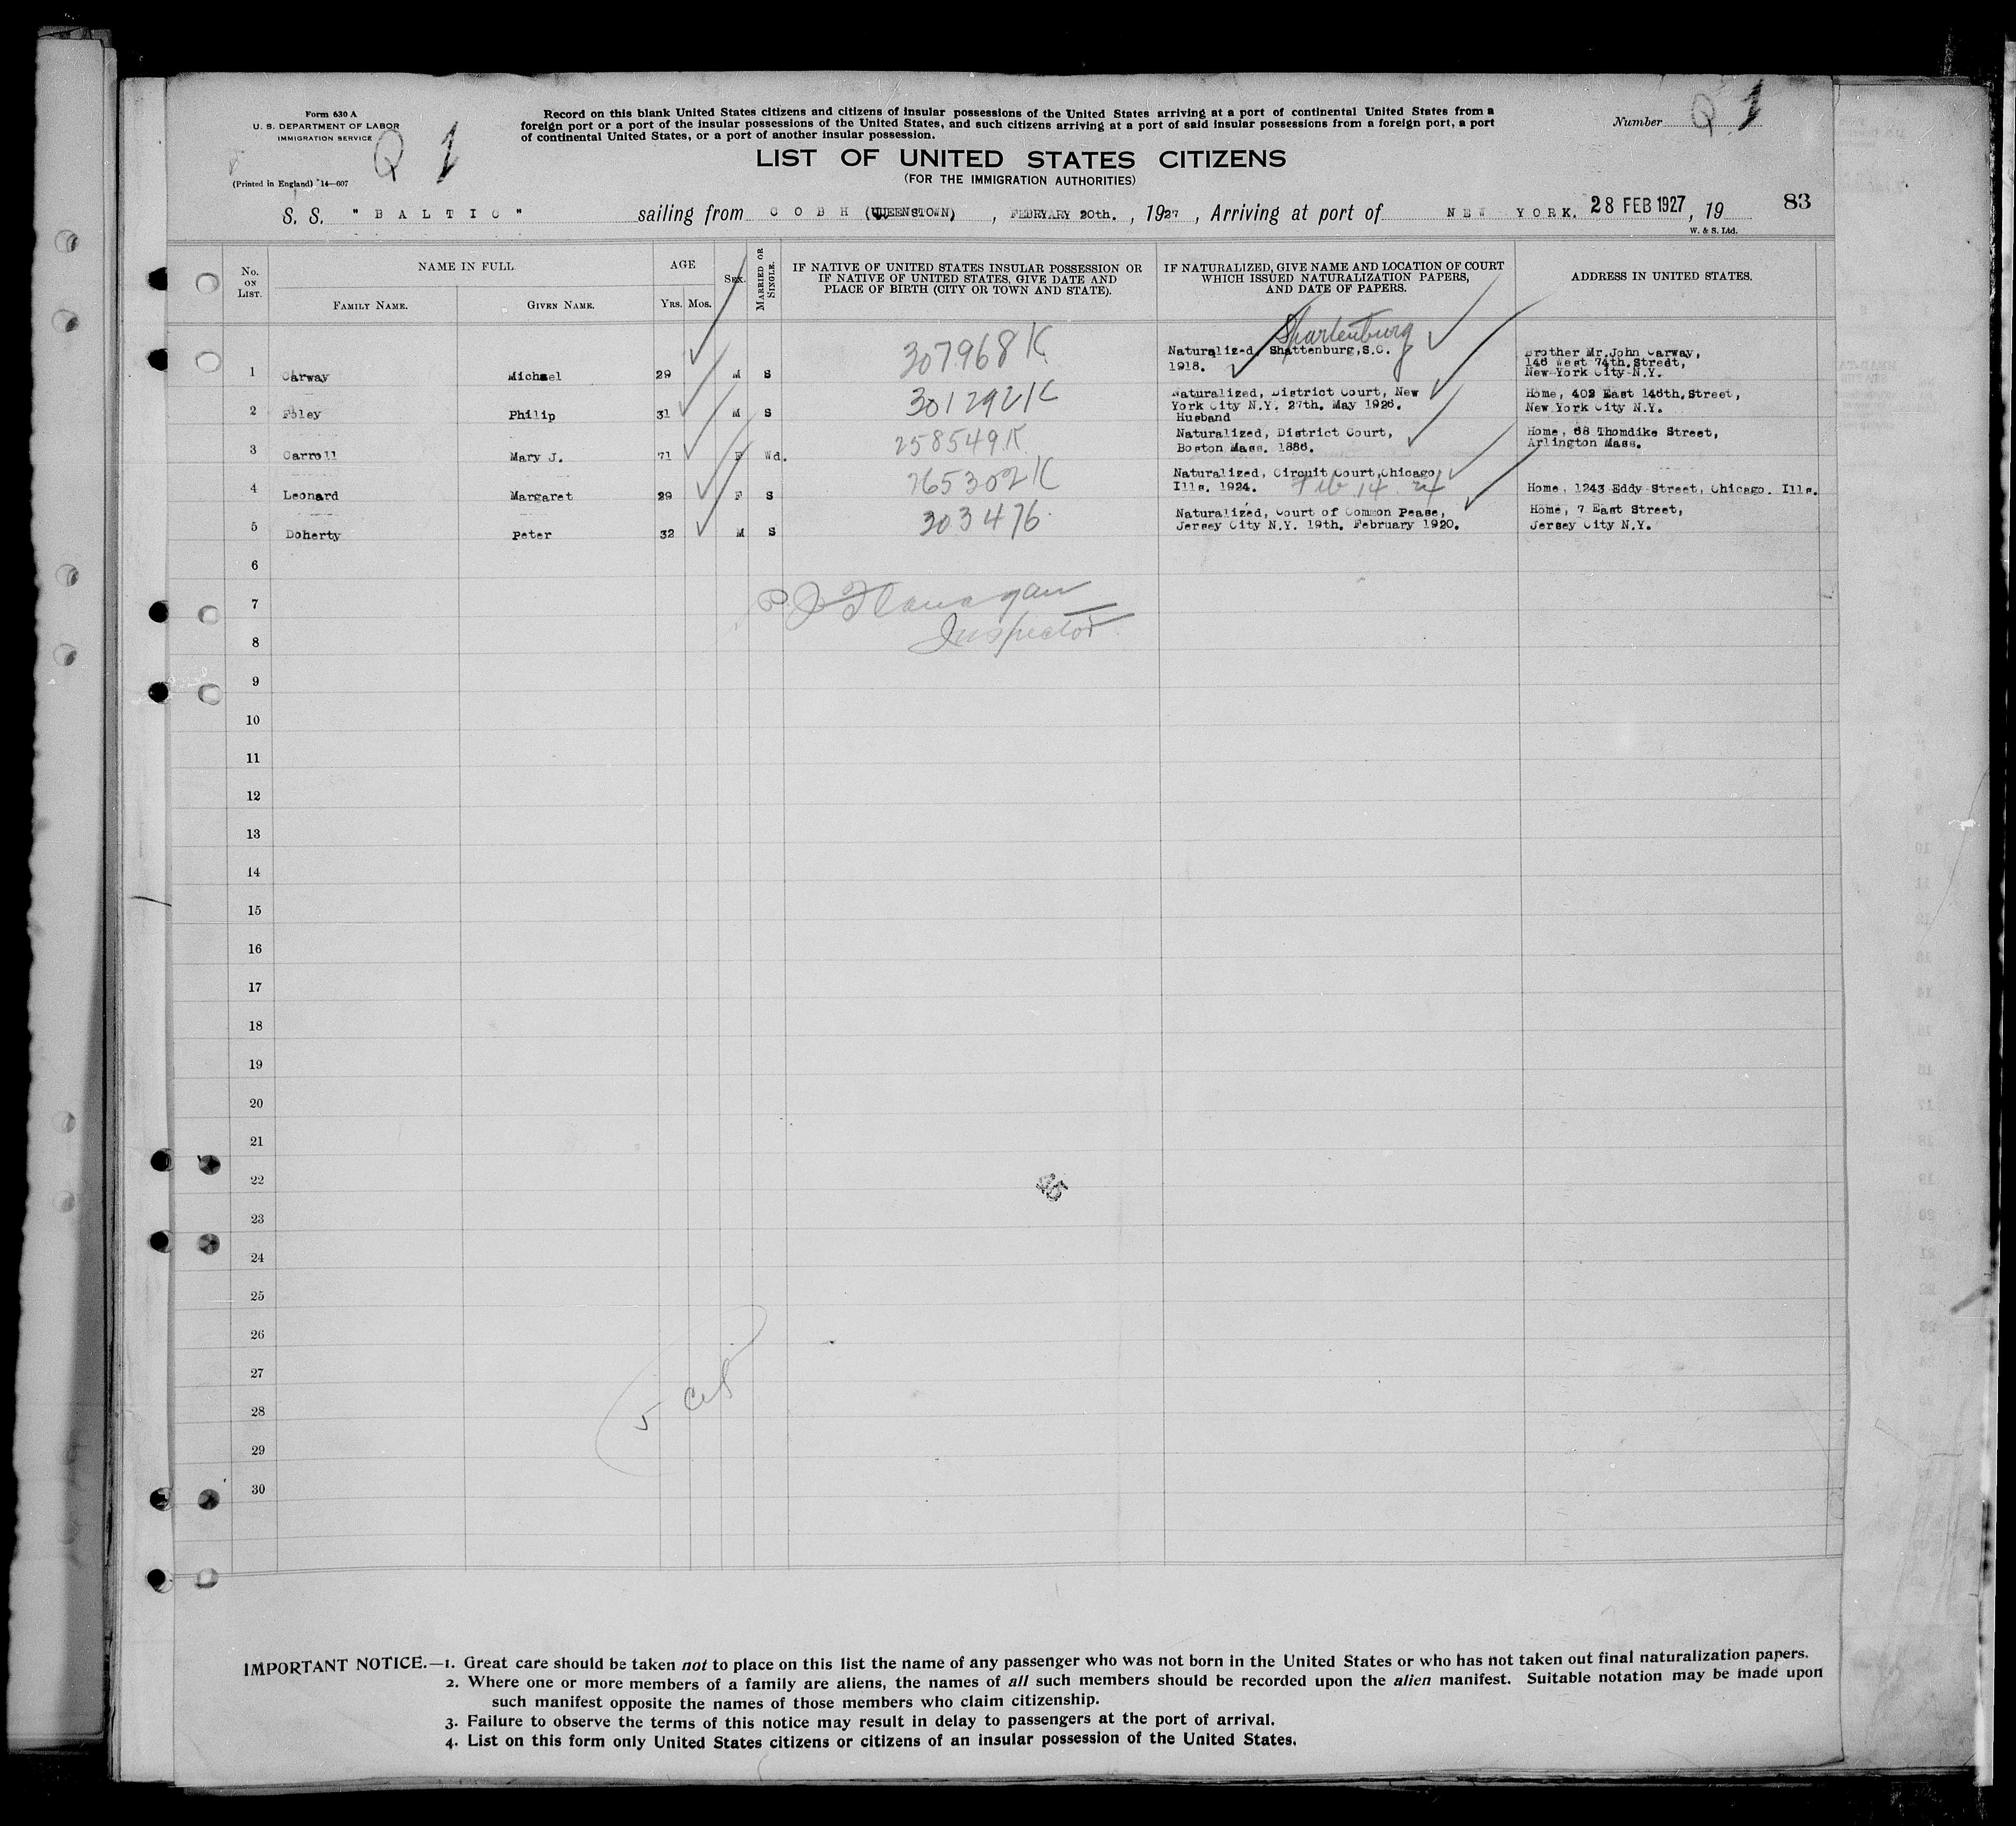 Form 630 A
U. S. DEPARTMENT OF LABOR
IMMIGRATION SERVICE
(Printed in England) 14—607
Q 1
Record on this blank United States citizens and citizens of insular possessions of the United States arriving at a port of continental United States from a
foreign port or a port of the insular possessions of the United States, and such citizens arriving at a port of said insular possessions from a foreign port, a port
of continental United States, or a port of another insular possession.
Number Q 1
LIST OF UNITED STATES CITIZENS
(FOR THE IMMIGRATION AUTHORITIES)
S. S. "BALTIC" sailing from COBH (QUEENSTOWN), FEBRYARY 20th., 1927, Arriving at port of NEW YORK. 28 FEB 1927, 19 83
W. & S. Ltd.
No. ON LIST. NAME IN FULL. AGE SEX. MARRIED OR SINGLE. IF NATIVE OF UNITED STATES INSULAR POSSESSION OR IF NATIVE OF UNITED STATES, GIVE DATE AND PLACE OF BIRTH (CITY OR TOWN AND STATE). IF NATURALIZED, GIVE NAME AND LOCATION OF COURT WHICH ISSUED NATURALIZATION PAPERS, AND DATE OF PAPERS. ADDRESS IN UNITED STATES.
FAMILY NAME. GIVEN NAME. Yrs. Mos.
Spartenburg
1 Carway Michael 29 M S 307968 K Naturalized, Shattenburg, S.C. 1918. Brother Mr. John Carway, 146 West 74th. Street, New York City N.Y.
2 Foley Philip 31 M S 301292 K Naturalized, District Court, New York City N.Y. 27th. May 1926. Home, 402 East 146th. Street, New York City N.Y.
3 Carroll Mary J. 71 F Wd. 258549 K Husband Naturalized, District Court, Boston Mass. 1886. Home, 68 Thomdike Street, Arlington Mass.
4 Leonard Margaret 29 F S 265302 K Naturalized, Circuit Court, Chicago Ills. 1924. Feb 14 24 Home, 1243 Eddy Street, Chicago. Ills.
5 Doherty Peter 32 M S 303476 Naturalized, Court of Common Pease, Jersey City N.Y. 19th. February 1920. Home, 7 East Street, Jersey City N.Y.
6
7
P J Flanagan
8
Inspector
9
10
11
12
13
14
15
16
17
18
19
20
21
22
23
24
25
26
27
28
5 cit
29
30
IMPORTANT NOTICE.—1. Great care should be taken not to place on this list the name of any passenger who was not born in the United States or who has not taken out final naturalization papers.
2. Where one or more members of a family are aliens, the names of all such members should be recorded upon the alien manifest. Suitable notation may be made upon
such manifest opposite the names of those members who claim citizenship.
3. Failure to observe the terms of this notice may result in delay to passengers at the port of arrival.
4. List on this form only United States citizens or citizens of an insular possession of the United States.